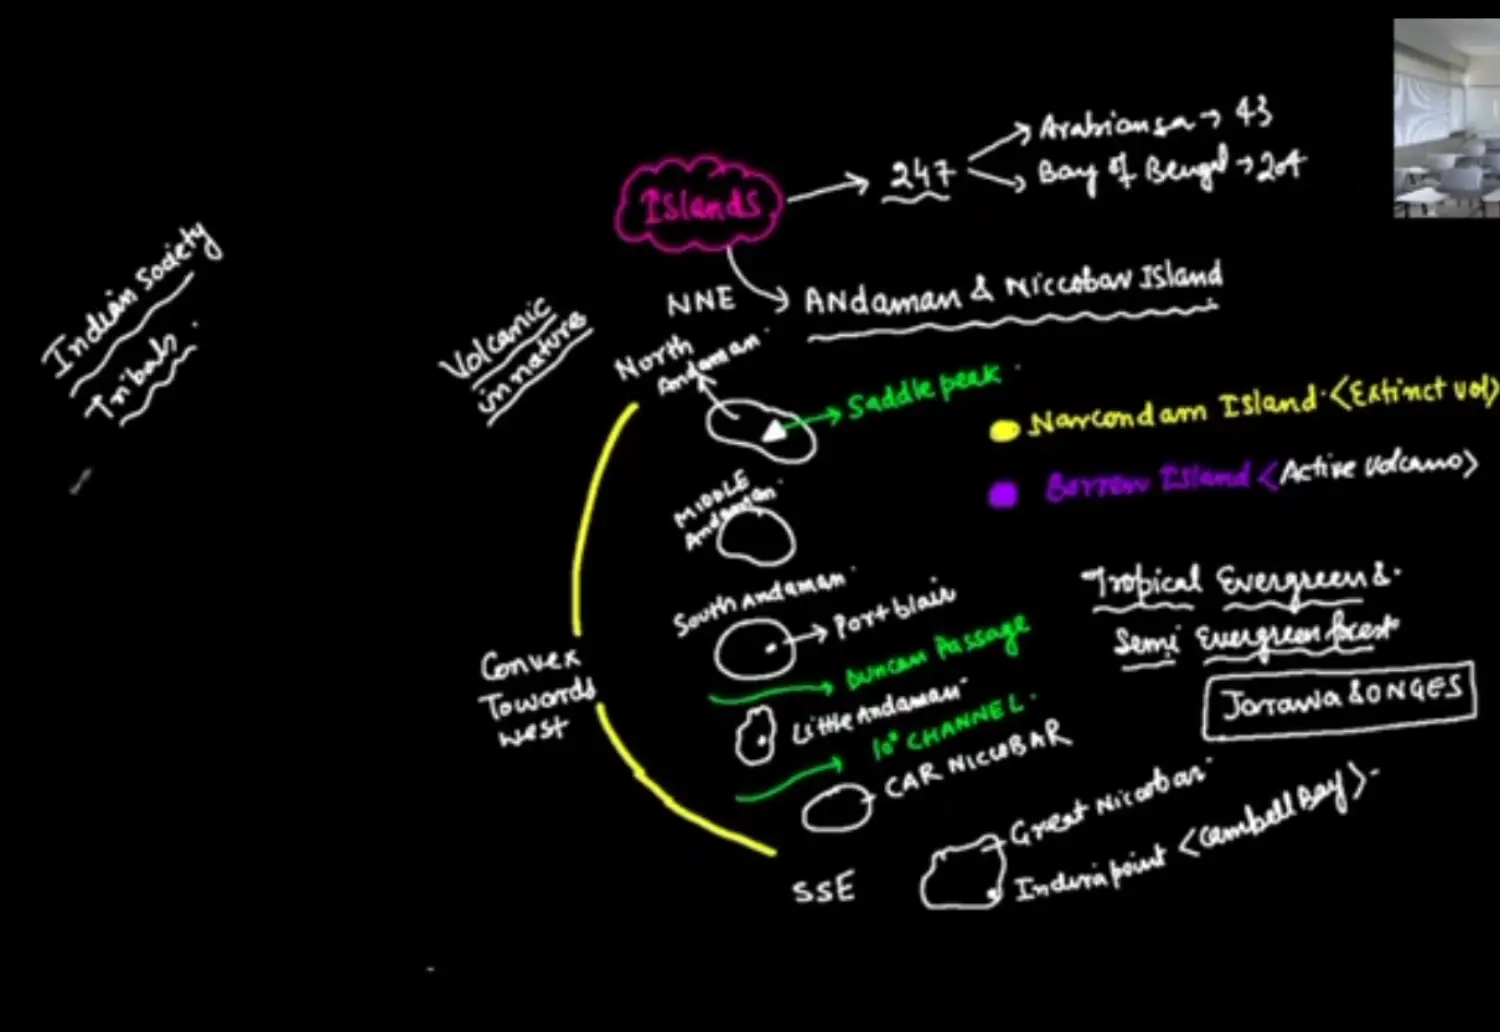 Arabiansa → 43
Islands → 247
Bay of Bengal → 204
Indian Society
Tribals.
Volcanic
in nature
NNE
ANdaman & Niccobar Island
North
Andaman.
Saddle peak.
Narcondam Island.<Extinct vol>
Barren Island <Active Volcano>
MIDDLE
Andaman.
South Andaman.
Port blair
Tropical Evergreen &.
Semi Evergreen forest
Duncan Passage
Jarawa & ONGES
Convex
Towards
west
Little Andaman
10° CHANNEL.
CAR NICCOBAR
Great Nicobar.
Indira point <Cambell Bay>.
SSE